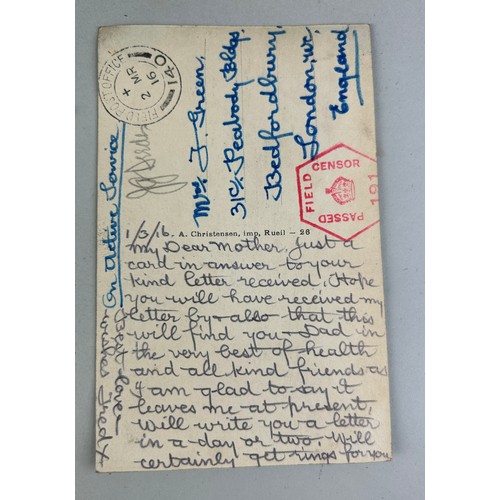 FIELD POST OFFICE
140
X
2 MR
16
On Active Service
Mrs J. Green,
31c, Peabody Bldgs.
Bedfordbury,
London, W.C.
England
PASSED FIELD CENSOR
191
A. Christensen, imp, Rueil — 26
1/3/16.
My Dear Mother, Just a
card in answer to your
kind letter received. Hope
you will have received my
letter by - also that this
will find you - Dad in
the very best of health
and all kind friends as
I am glad to say it
leaves me at present,
Will write you a letter
in a day or two. Will
certainly get rings for you
Best love -
wishes Fred x